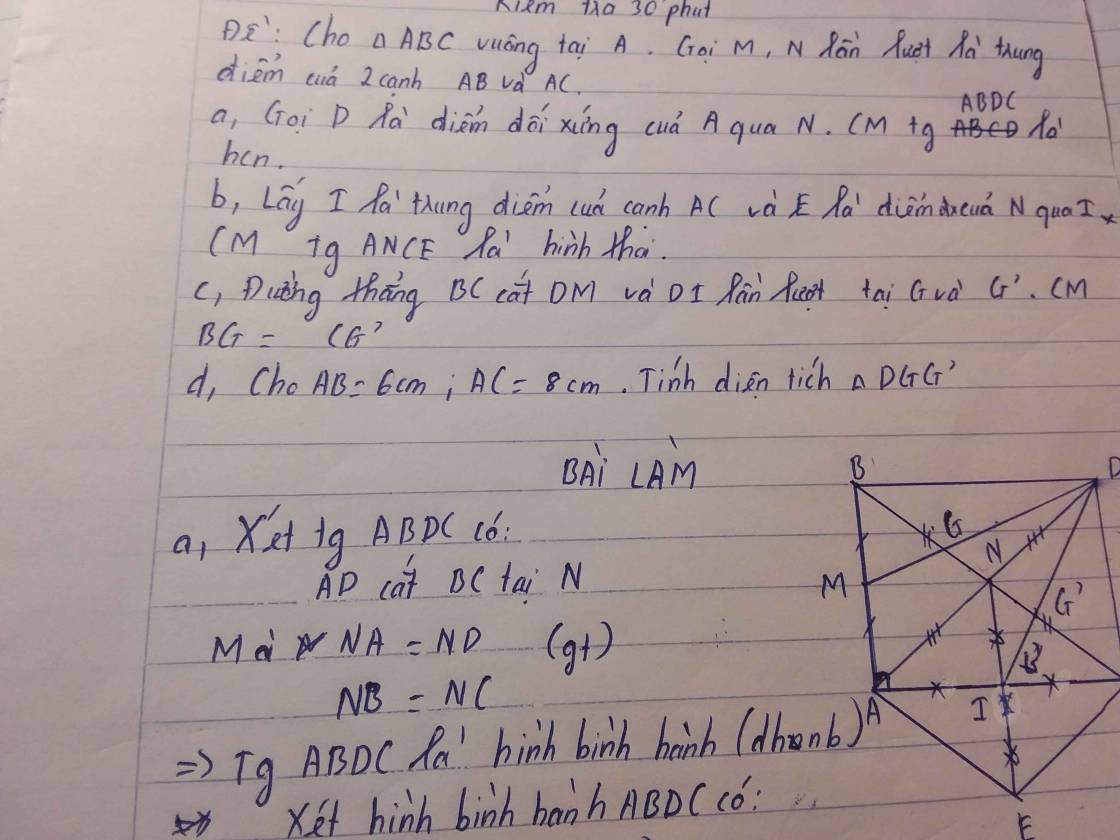 Kiểm tra 30 phút
Đề: Cho △ ABC vuông tại A. Gọi M, N lần lượt là trung
điểm cuả 2 cạnh AB và AC.
a, Gọi D là điểm đối xứng cuả A qua N. CM tg ABCD ABDC là
hcn.
b, Lấy I là trung điểm cuả cạnh AC và E là điểm đx cuả N qua I.
CM tg ANCE là hình thoi.
c, Đường thẳng BC cắt DM và DI lần lượt tại G và G'. CM
BG = CG'
d, Cho AB = 6cm ; AC = 8cm. Tính diện tích △ DGG'
BÀI LÀM
a, Xét tg ABDC có:
AD cắt BC tại N
Mà NA = ND (gt)
NB = NC
=> Tg ABDC là hình bình hành (dhnb)
Xét hình bình hành ABDC có:
B
D
G
N
M
G'
A
I
E